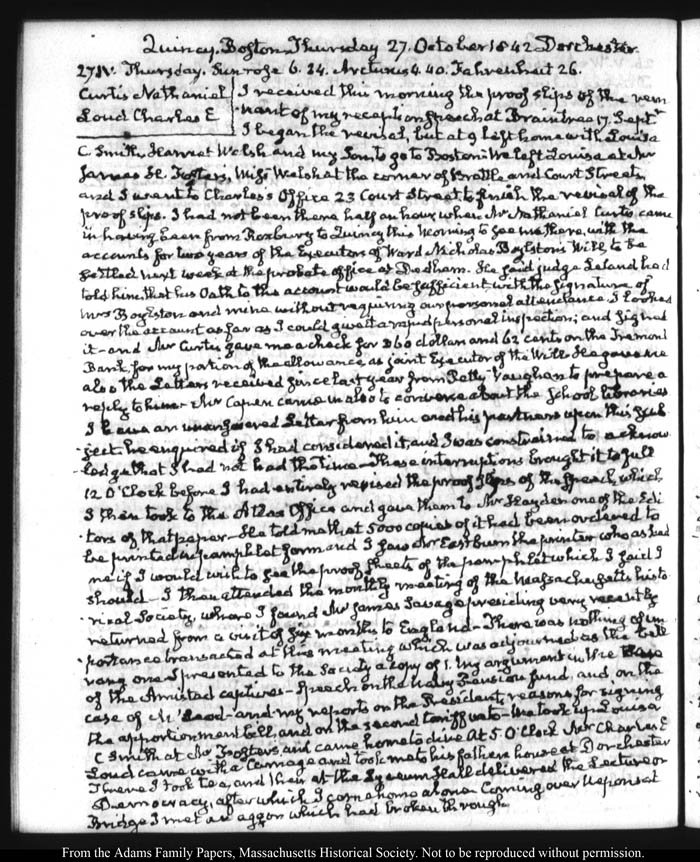 Quincy. Boston Thursday 27. October 1842 Dorchester
27. IV. Thursday. Sun rose 6. 34. Arcturus 4. 40. Fahrenheit 26.
Curtis Nathaniel
Loud Charles E
I received this morning the proof slips of the rem
nant of my reception speech at Braintree 17. Septr.
I began the revisal, but at 9 left home with Louisa
C. Smith, Harriet Welsh and my Son to go to Boston. We left Louisa at Mr
James H. Foster's, Miss Welsh at the corner of Brattle and Court Streets
and I went to Charles's Office 23 Court Street to finish the revisal of the
proof slips. I had not been there half an hour when Mr Nathaniel Curtis came
in having been from Roxbury to Quincy this morning to see me there, with the
accounts for two years of the Executors of Ward Nicholas Boylston's Will to be
settled next week at the probate office at Dedham. He said judge Leland had
told him that his Oath to the account would be sufficient with the signature of
Mrs Boylston and mine without requiring our personal attendance. I looked
over the account as far as I could give it a rapid personal inspection; and signed
it—and Mr Curtis gave me a check for 360 dollars and 62 cents on the Tremont
Bank for my portion of the allowance as joint Executor of the Will. He gave me
also the Letters received since last year from Petty Vaughan to prepare a
reply to him. Mr Capen came in also to converse about the School libraries
I have an unanswered Letter from him and his partners upon this sub
ject he enquired if I had considered it, and I was constrained to acknow
ledge that I had not had the time—These interruptions brought it to full
12 O'Clock before I had entirely revised the proof slips of the speech, which
I then took to the Atlas Office and gave them to Mr Hayden one of the Edi
tors of that paper—He told me that 5000 copies of it had been ordered to
be printed in pamphlet form and I saw Mr Eastburn the printer who asked
me if I would wish to see the proof sheets of the pamphlet which I said I
should—I then attended the monthly meeting of the Massachusetts histo
rical Society, where I found Mr James Savage presiding very recently
returned from a visit of six months to England—There was nothing of im
portance transacted at this meeting which was adjourned as the bell
rang one. I presented to the Society a copy of 1. my argument in the Case
of the Amistad captives—Speech on the Navy Pension fund, and, on the
case of McLeod—and my reports on the President's reasons for signing
the apportionment bill, and on the second tariff veto—We took up Louisa
C Smith at Mr Foster's, and came home to dine. At 5. O'Clock Mr Charles E
Loud came with a Carriage and took me to his father's house at Dorchester
There I took tea, and then at the Lyceum Hall delivered the Lecture on
Democracy, after which I came home alone. Coming over Neponset
Bridge I met a waggon which had broken through
From the Adams Family Papers, Massachusetts Historical Society. Not to be reproduced without permission.